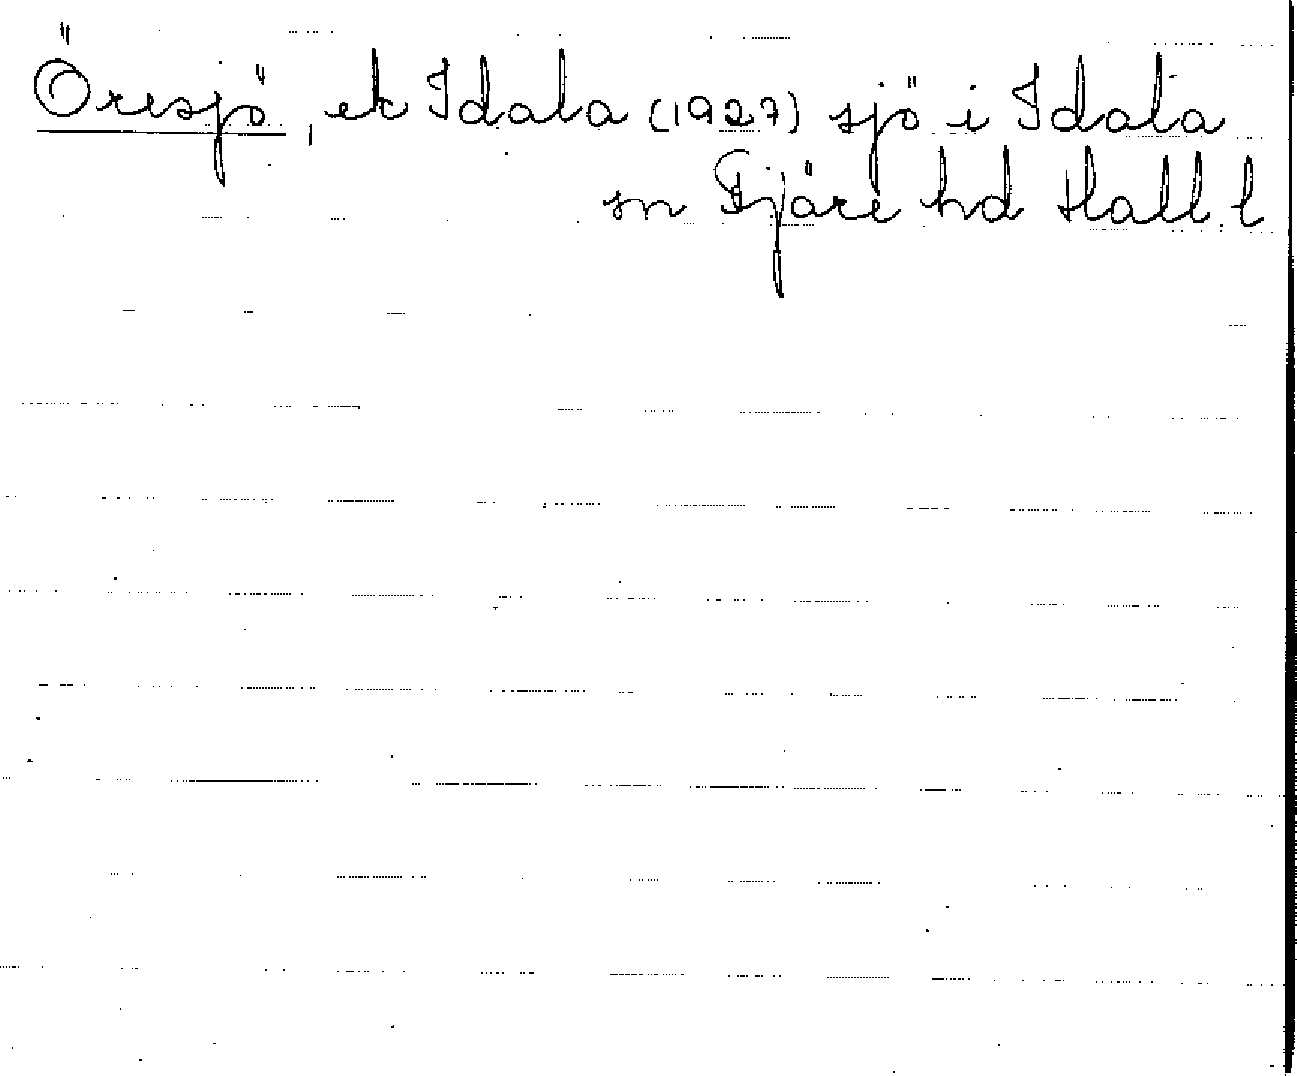 Öresjö, ek Idala (1927) sjö i Idala
sn Fjäre hd Hall. l